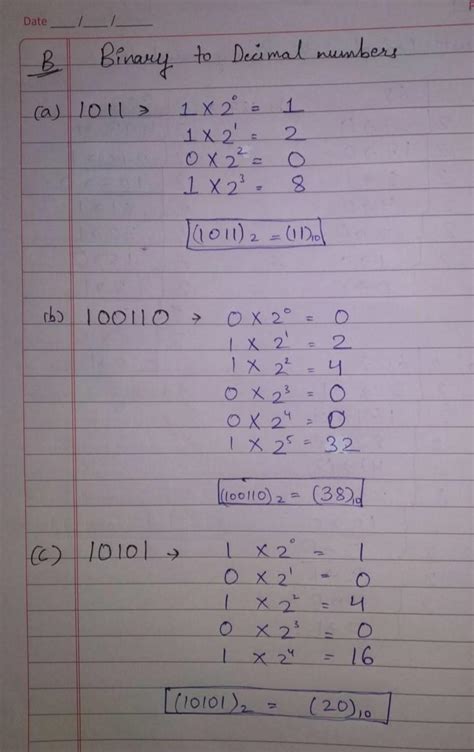 Date __/__/__
B Binary to Decimal numbers
(a) 1011 → 1 × 2⁰ = 1
1 × 2¹ = 2
0 × 2² = 0
1 × 2³ = 8
(1011)₂ = (11)₁₀
(b) 100110 → 0 × 2⁰ = 0
1 × 2¹ = 2
1 × 2² = 4
0 × 2³ = 0
0 × 2⁴ = 0
1 × 2⁵ = 32
(100110)₂ = (38)₁₀
(c) 10101 → 1 × 2⁰ = 1
0 × 2¹ = 0
1 × 2² = 4
0 × 2³ = 0
1 × 2⁴ = 16
(10101)₂ = (20)₁₀